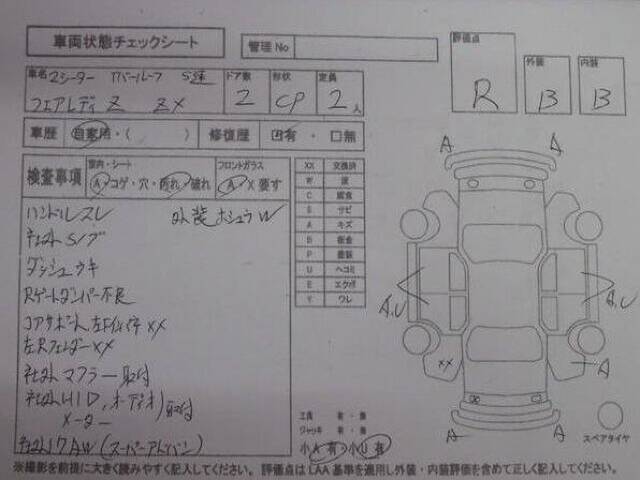 車両状態チェックシート
管理No
評価点
R
外装
B
内装
B
車名 2シーター Tバールーフ 5速
フェアレディ Z ZX
ドア数
2
形状
CP
定員
2人
車歴 自家用・( ) 修復歴 有・無
検査事項
室内・シート
A コゲ・穴・汚れ・破れ
フロントガラス
A X 要す
ハンドルスレ 外装ホシュウW
社外Sノブ
ダッシュウキ
Rゲートダンパー不良
コアサポート左 XX
左RフェンダーXX
社外マフラー取付
社外HID,オーディオ取付
メーター
社外17AW(スーパーアドバン)
XX 交換済
W 波
C 腐食
S サビ
A キズ
B 板金
P 塗装
U ヘコミ
E エクボ
Y ワレ
A
A
A,U
A,U
XX
A
A
A
工具 有・無
ジャッキ 有・無
小A有 小U有
スペアタイヤ
※撮影を前提に大きく読みやすく記入してください。評価点はLAA基準を適用し外装・内装評価を含めて正しく記入してください。